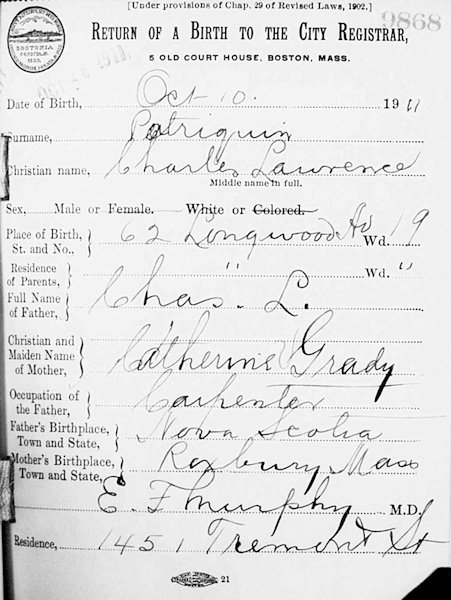 [Under provisions of Chap. 29 of Revised Laws, 1902.]
9868
RETURN OF A BIRTH TO THE CITY REGISTRAR,
5 OLD COURT HOUSE, BOSTON, MASS.
BOSTONIA
Date of Birth, Oct 10. 1911
Surname, Patriquin
Christian name, Charles Lawrence
Middle name in full.
Sex, Male or Female. White or Colored.
Place of Birth, St. and No., 62 Longwood Av Wd. 19
Residence of Parents, " Wd. "
Full Name of Father, Chas. L.
Christian and Maiden Name of Mother, Catherine Grady
Occupation of the Father, Carpenter
Father's Birthplace, Town and State, Nova Scotia
Mother's Birthplace, Town and State, Roxbury Mass
E. F. Murphy M.D.
Residence, 1451 Tremont St
21